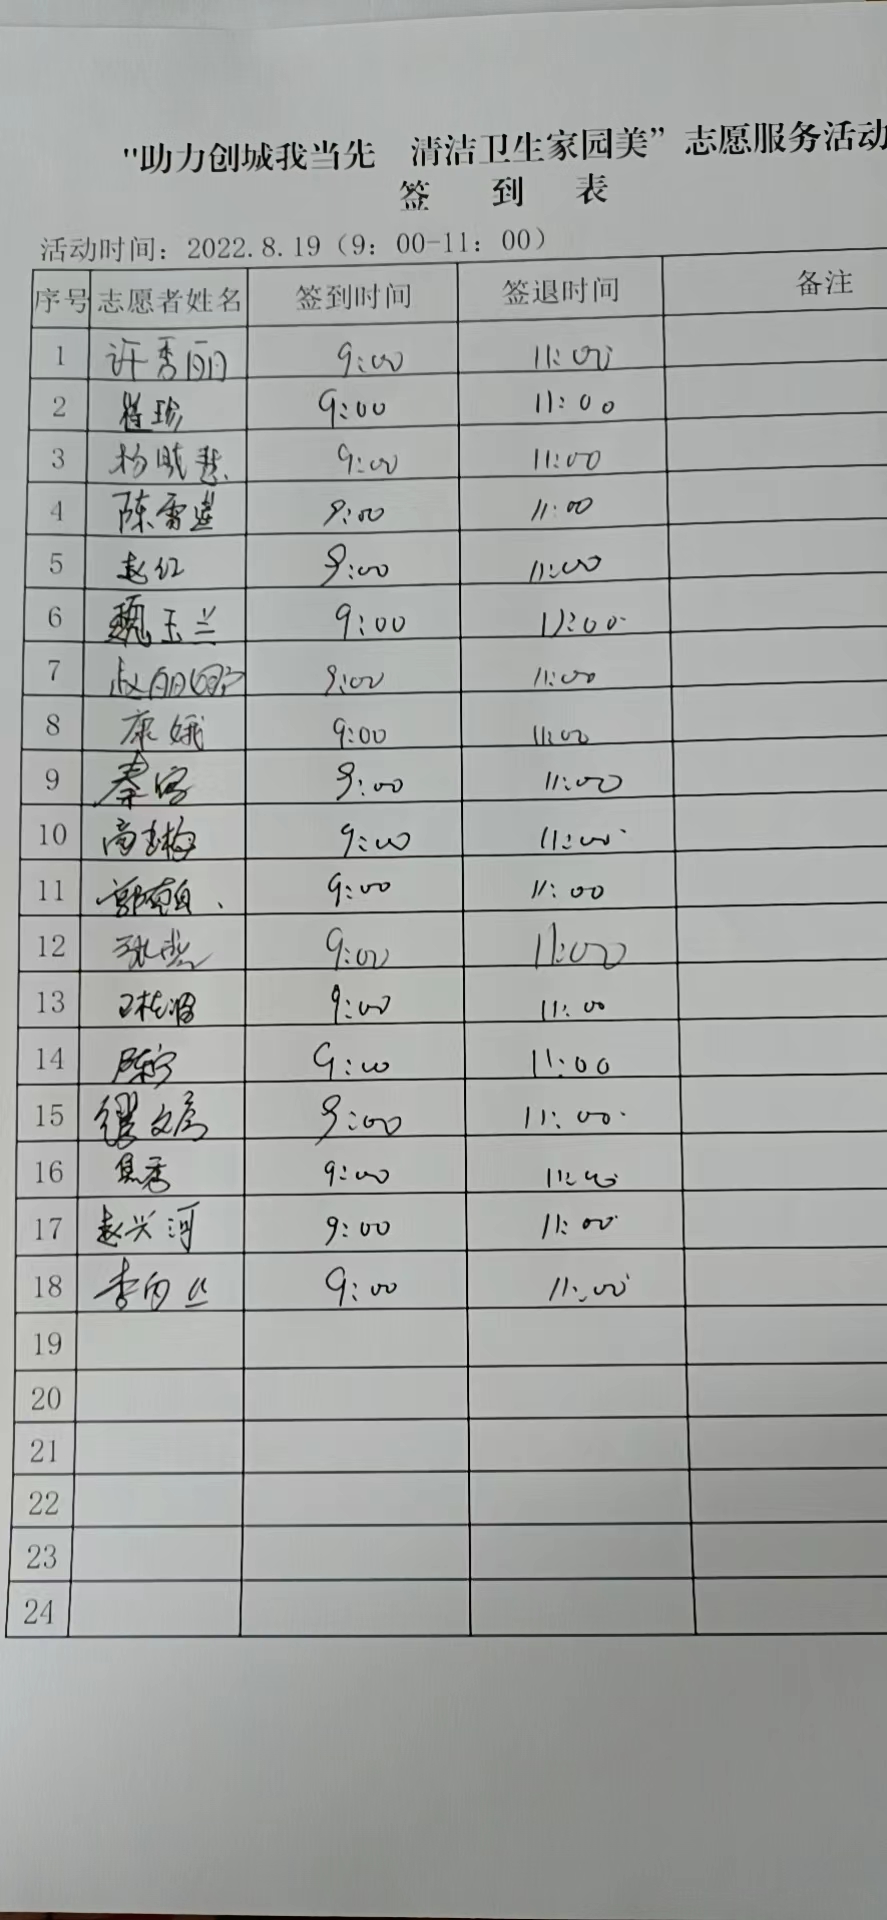 "助力创城我当先 清洁卫生家园美”志愿服务活动
签 到 表
活动时间：2022.8.19（9：00-11：00）
序号 志愿者姓名 签到时间 签退时间 备注
1 许秀丽 9:00 11:00
2 9:00 11:00
3 杨晓慧 9:00 11:00
4 陈雷莲 9:00 11:00
5 赵红 9:00 11:00
6 魏玉兰 9:00 11:00
7 9:00 11:00
8 康娥 9:00 11:00
9 秦 9:00 11:00
10 高玉梅 9:00 11:00
11 9:00 11:00
12 9:00 11:00
13 9:00 11:00
14 陈宁 9:00 11:00
15 缪文 9:00 11:00
16 9:00 11:00
17 赵兴河 9:00 11:00
18 李 9:00 11:00
19
20
21
22
23
24